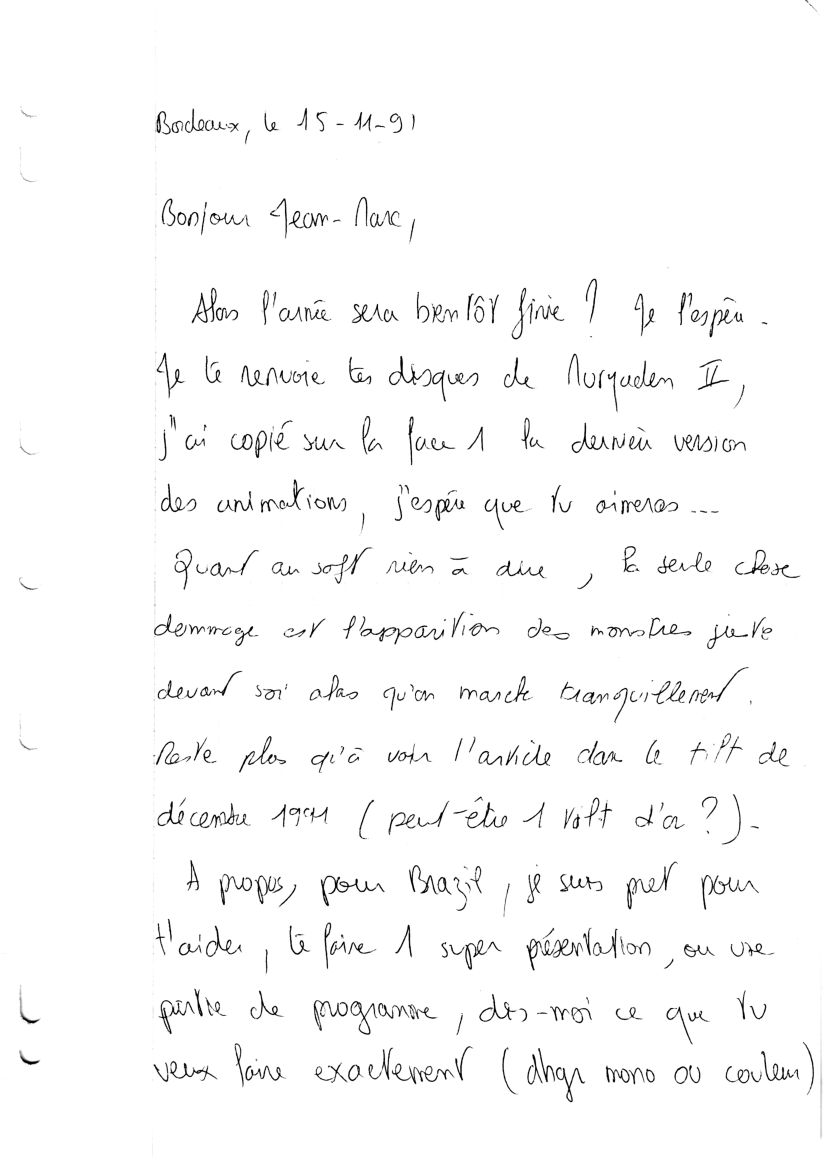 Bordeaux, le 15-11-91
Bonjour Jean-Marc,
Alors l'année sera bientôt finie ? Je l'espère.
Je te renvoie tes disques de Murgaden II,
j'ai copié sur la face 1 la dernière version
des animations, j'espère que tu aimeras...
Quant au soft rien à dire, la seule chose
dommage est l'apparition des monstres juste
devant soi alors qu'on marche tranquillement.
Reste plus qu'à voir l'article dans le tilt de
décembre 1991 (peut-être 1 tilt d'or ?).
A propos, pour Brazil, je suis pret pour
t'aider, te faire 1 super présentation, ou une
partie de programme, dis-moi ce que tu
veux faire exactement (dhgr mono ou couleur)